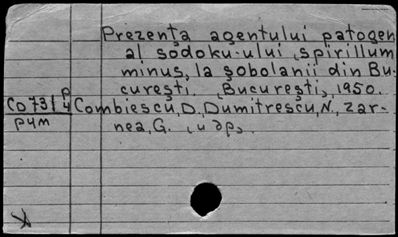 Prezenţa agentului patogen
al sodoku-ului, spirillum
minus, la şobolanii din Bu-
cureşti. Bucureşti, 1950.
Combiescu, D., Dumitrescu, N., Zar-
nea, G.